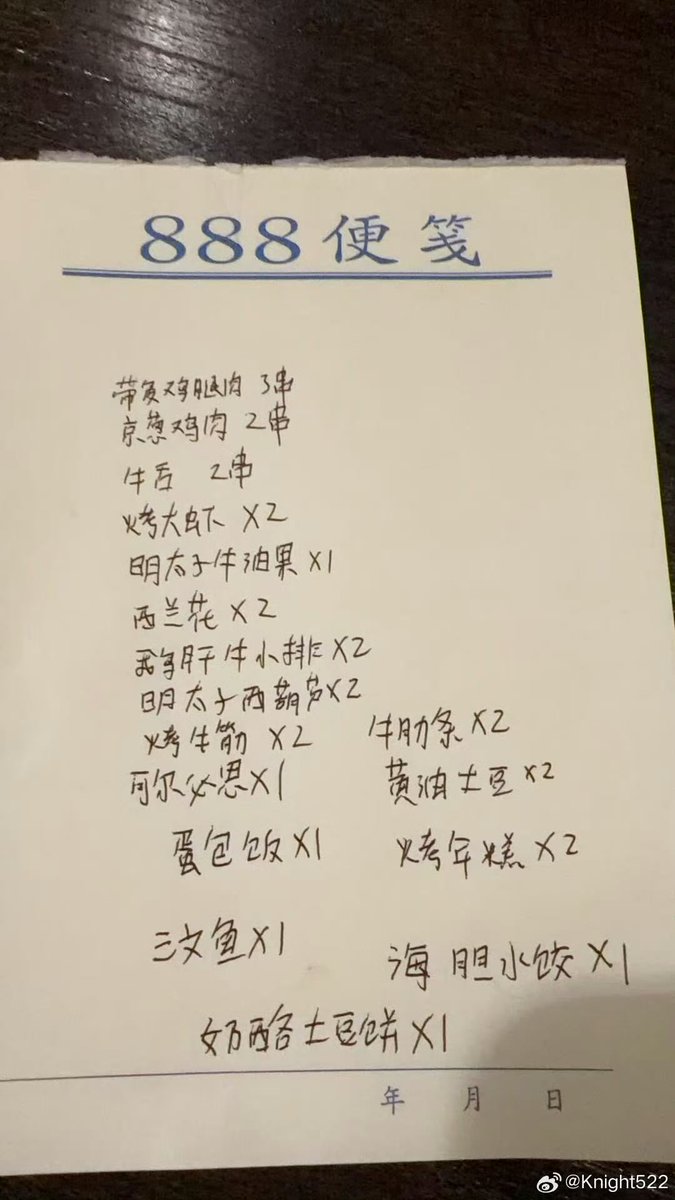 888便笺
带皮鸡腿肉 3串
京葱鸡肉 2串
牛舌 2串
烤大虾 X2
明太子牛油果 X1
西兰花 X2
鹅肝牛小排 X2
明太子西葫芦X2
烤牛筋 X2
牛肋条 X2
可尔必思X1
黄油土豆 X2
蛋包饭X1
烤年糕 X2
三文鱼X1
海胆水饺 X1
奶酪土豆饼X1
年 月 日
@Knight522